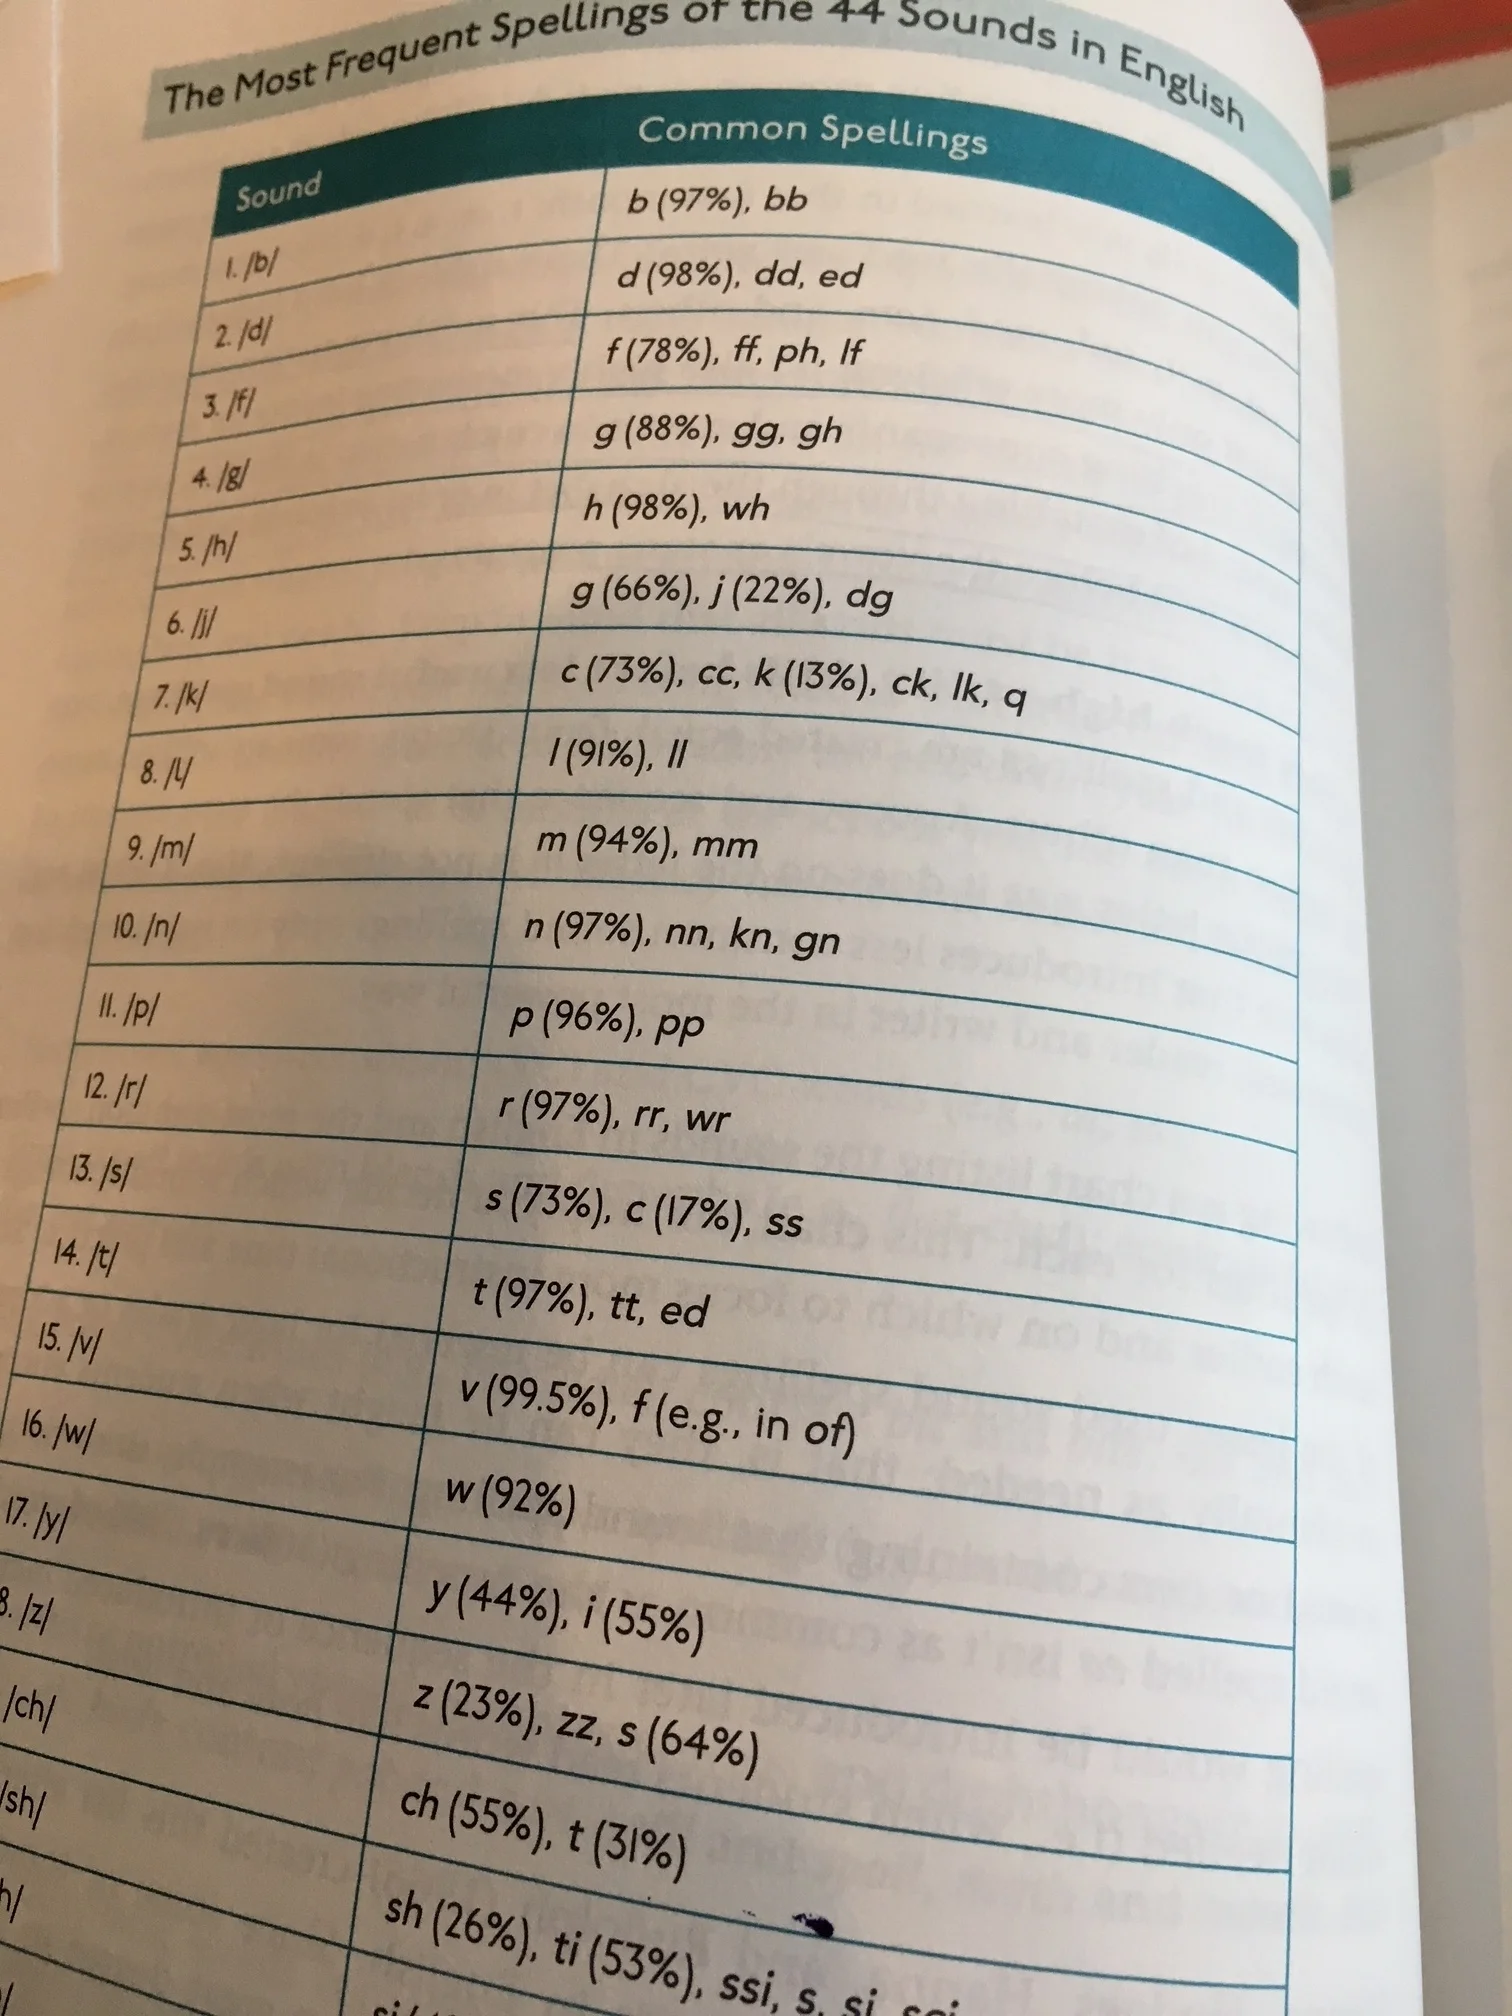 The Most Frequent Spellings of the 44 Sounds in English
Sound Common Spellings
1. /b/ b (97%), bb
2. /d/ d (98%), dd, ed
3. /f/ f (78%), ff, ph, lf
4. /g/ g (88%), gg, gh
5. /h/ h (98%), wh
6. /j/ g (66%), j (22%), dg
7. /k/ c (73%), cc, k (13%), ck, lk, q
8. /l/ l (91%), ll
9. /m/ m (94%), mm
10. /n/ n (97%), nn, kn, gn
11. /p/ p (96%), pp
12. /r/ r (97%), rr, wr
13. /s/ s (73%), c (17%), ss
14. /t/ t (97%), tt, ed
15. /v/ v (99.5%), f (e.g., in of)
16. /w/ w (92%)
17. /y/ y (44%), i (55%)
8. /z/ z (23%), zz, s (64%)
/ch/ ch (55%), t (31%)
/sh/ sh (26%), ti (53%), ssi, s, si, sci